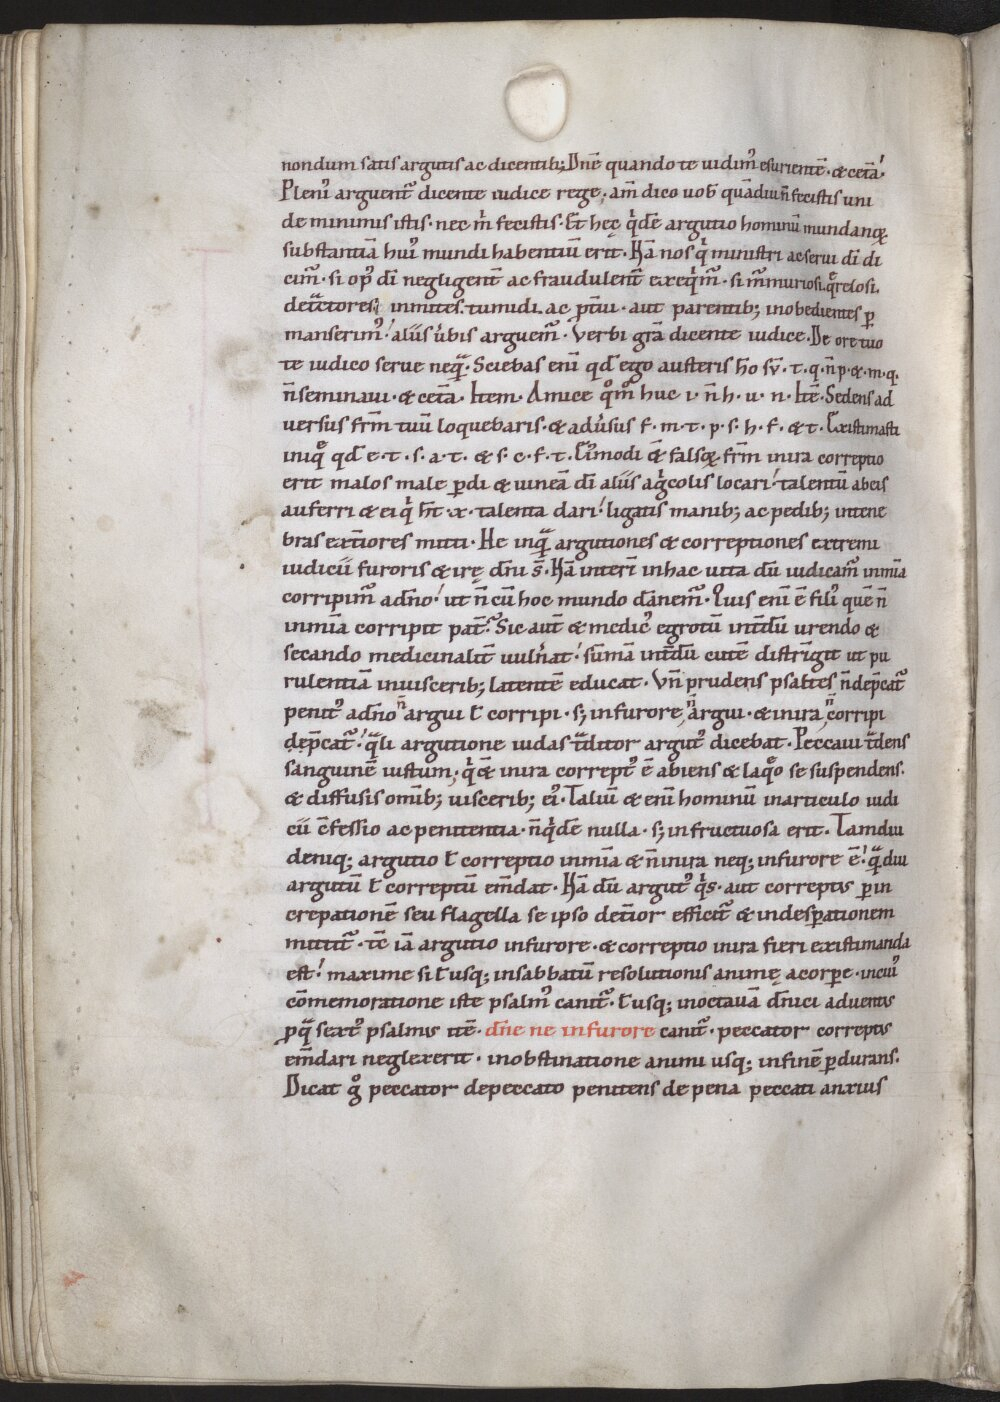 nondum satis argutis ac dicentib; Dnē quando te uidim᾽ esurientē · & cetā ·
Pleni᾽ arguent᷑ dicente iudice rege ; am̄ dico uob̄ quādiu n̄ fecistis uni
de minimis istis · nec m̊ fecistis · Et hęc qͥdē argutio hominū mundanoꝝ
substantiā hui᾽ mundi habentiū erit · Nā nos qͥ ministri ac serui dī di
cim᷑ · si op᾽ dī negligent̄ ac fraudulent̄ exeqͥm᷑ · si m᷑muriosi · qͦrelosi ·
det᷑ctores · inmites · tumidi · ac ꝓt̄ui · aut parentib; inobedientes ꝑ
manserim᾽ · aliis ūbis arguem᷑ · Verbi gr̄a dicente iudice · De ore tuo
te iudico serue neqᷓ · Sciebas eni᷑ qđ ego austeris h̄o sū · t · q · n̄ p · & · m · q ·
n̄ seminaui · & cet̄a · Item · Amice qͦm̊ huc i · n̄ h · u · n · Itē · Sedens ad
uersus fr̄m tuū loquebaris · & adūsus f · m · t · p · s · h · f · & t · Existimasti
iniqͦ qđ e · t · s · a · t · & s · c · f · t · Ei᾽modi &̄ falsoꝝ fr̄m in ira correptio
erit malos male ꝑdi & uineā dī aliis agͥcolis locari · talentū abeis
auferri & ei qͥ ħt · x · talenta dari · ligatis manib; ac pedib; intene
bras ext̄iores mitti · He inqᷓ argutiones & correptiones extremi
iudicii furoris & irę dn̄i s̄ · Nā interī in hac uita dū iudicam᷑ in mīa
corripim᷑ a dn̄o · ut n̄ cū hoc mundo dānem᷑ · Quis enī ē fili᾽ quē n̄
in mīa corripit pat᷑ · Sic aut̄ & medic᾽ egrotū int̄dū urendo &
secando medicinalit̄ uuln̄at · sūmā int̄dū cutē distrīgit ut pu
rulentiā in uiscerib; latentē educat · Vn̄ prudens psaltes n̄ dep̄cat᷑
penit᾽ a dn̄o n̄ argui ł corripi · s; in furore n̄ argui · & in ira n̄ corripi
dep̄cat᷑ · qᷓli argutione iudas tᷓditor argut᾽ dicebat · Peccaui tᷓdens
sanguinē iustum ; qͥ &̄ in ira corrept᾽ ē abiens & laqͦo se suspendens ·
& diffusis omīb; uiscerib; ei᾽ · Taliū & enī hominū in articulo iudi
cii c̄fessio ac penitentia · n̄ qͥdē nulla · s; infructuosa erit · Tamdiu
deniq; argutio ł correptio in mīa & n̄ in ira neq; in furore ē · qᷓdiu
argutū ł correptū em̄dat · Nā dū argut᾽ qͥs · aut correptis ꝑ in
crepationē seu flagella se ipso det̄ior efficit᷑ & in desꝑationem
mittit᷑ · t̄c iā argutio in furore · & correptio in ira fieri existimanda
est · maxime si ł usq; in sabbatū resolutionis animę a corꝑe · in cui᾽
cōmemoratione iste psalm᾽ canit᷑ · ł usq; in octauā dn̄ici aduentis
ꝓ qᷓ sext᾽ psalmis itē · dn̄e ne in furore canit᷑ · peccator correptis
em̄dari neglexerit · in obstinatione animi usq; in finē ꝑdurans ·
Dicat gͦ peccator de peccato penitens de pena peccati anxius